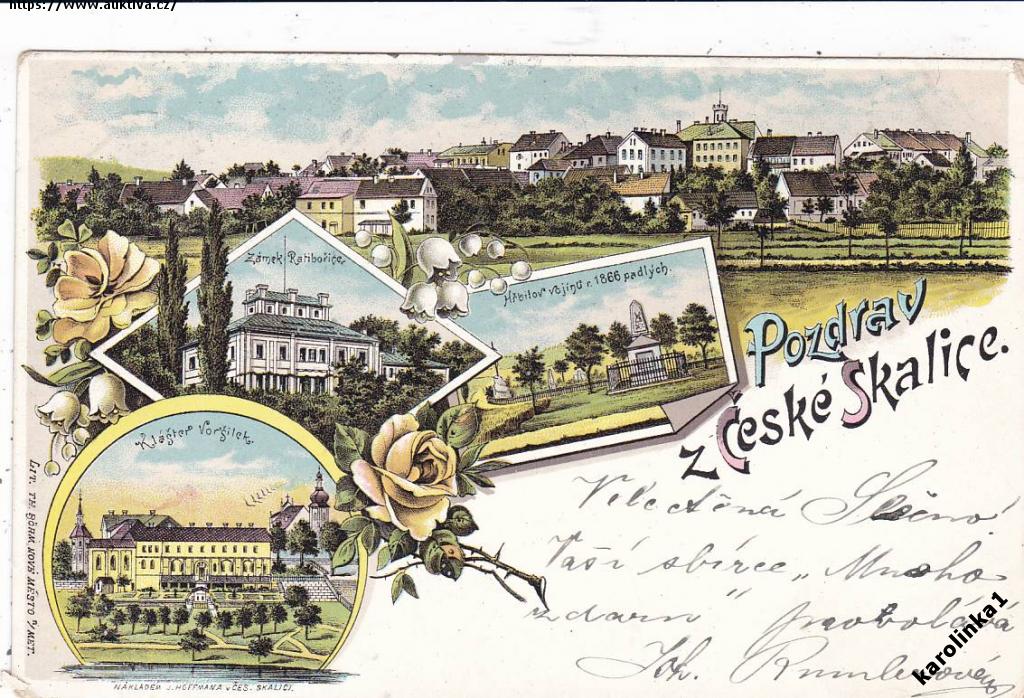 https://www.auktiva.cz/
Zámek Ratibořice.
Hřbitov vojínů r. 1866 padlých.
Pozdrav
z České Skalice.
Klášter Voršilek.
Velectěná Slečno
Vaší sbírce „Mnoho
zdaru" provolává
Joh.
LIT. TH. BÖHM, NOVÉ MĚSTO n/MET.
NÁKLADEM J. HOFFMANA v ČES. SKALICI.
karolinka1